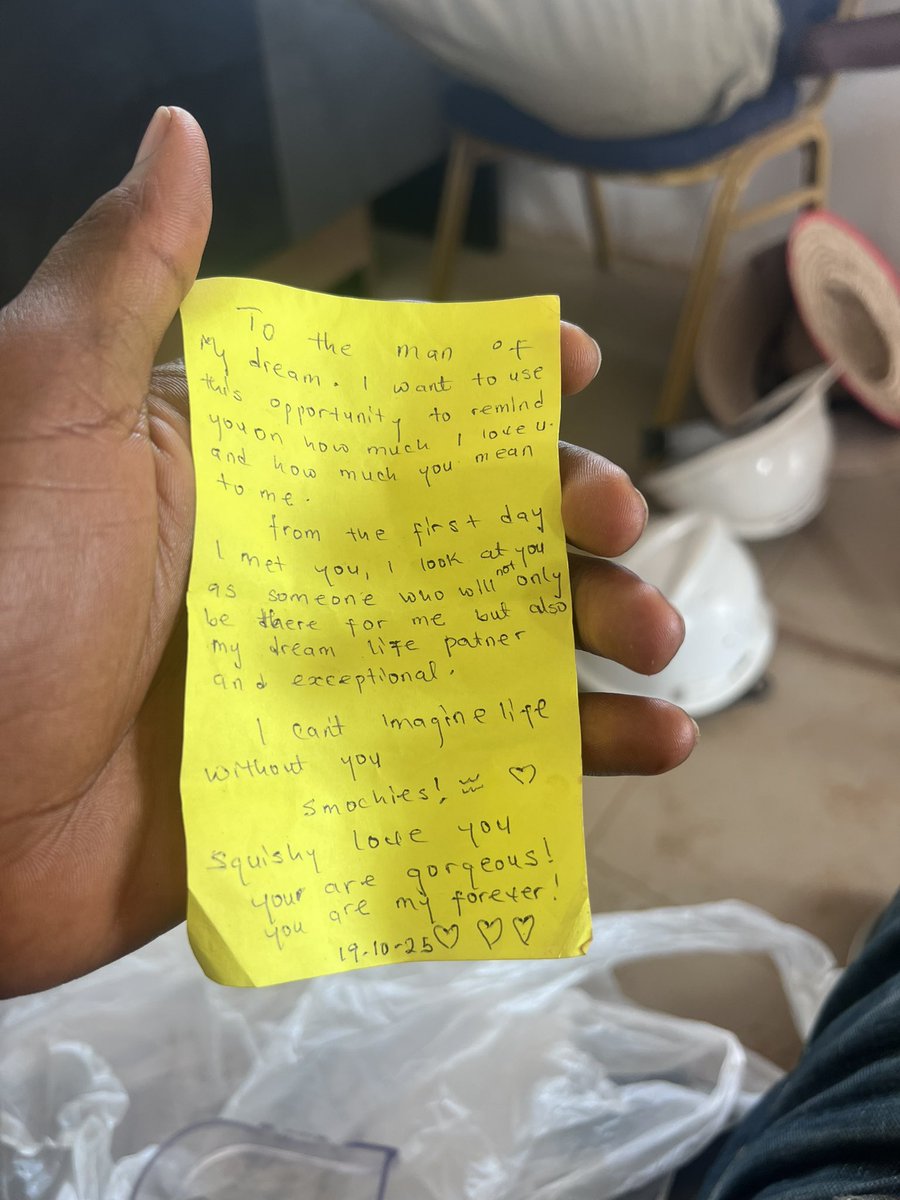 To the man of
My dream. I want to use
this opportunity to remind
you on how much I love u.
and how much you mean
to me.
from the first day
I met you, I look at you
as someone who will not only
be there for me but also
my dream life patner
and exceptional.
I can't imagine life
without you
smochies! ♡
Squishy love you
your are gorgeous!
you are my forever!
19-10-25 ♡ ♡ ♡